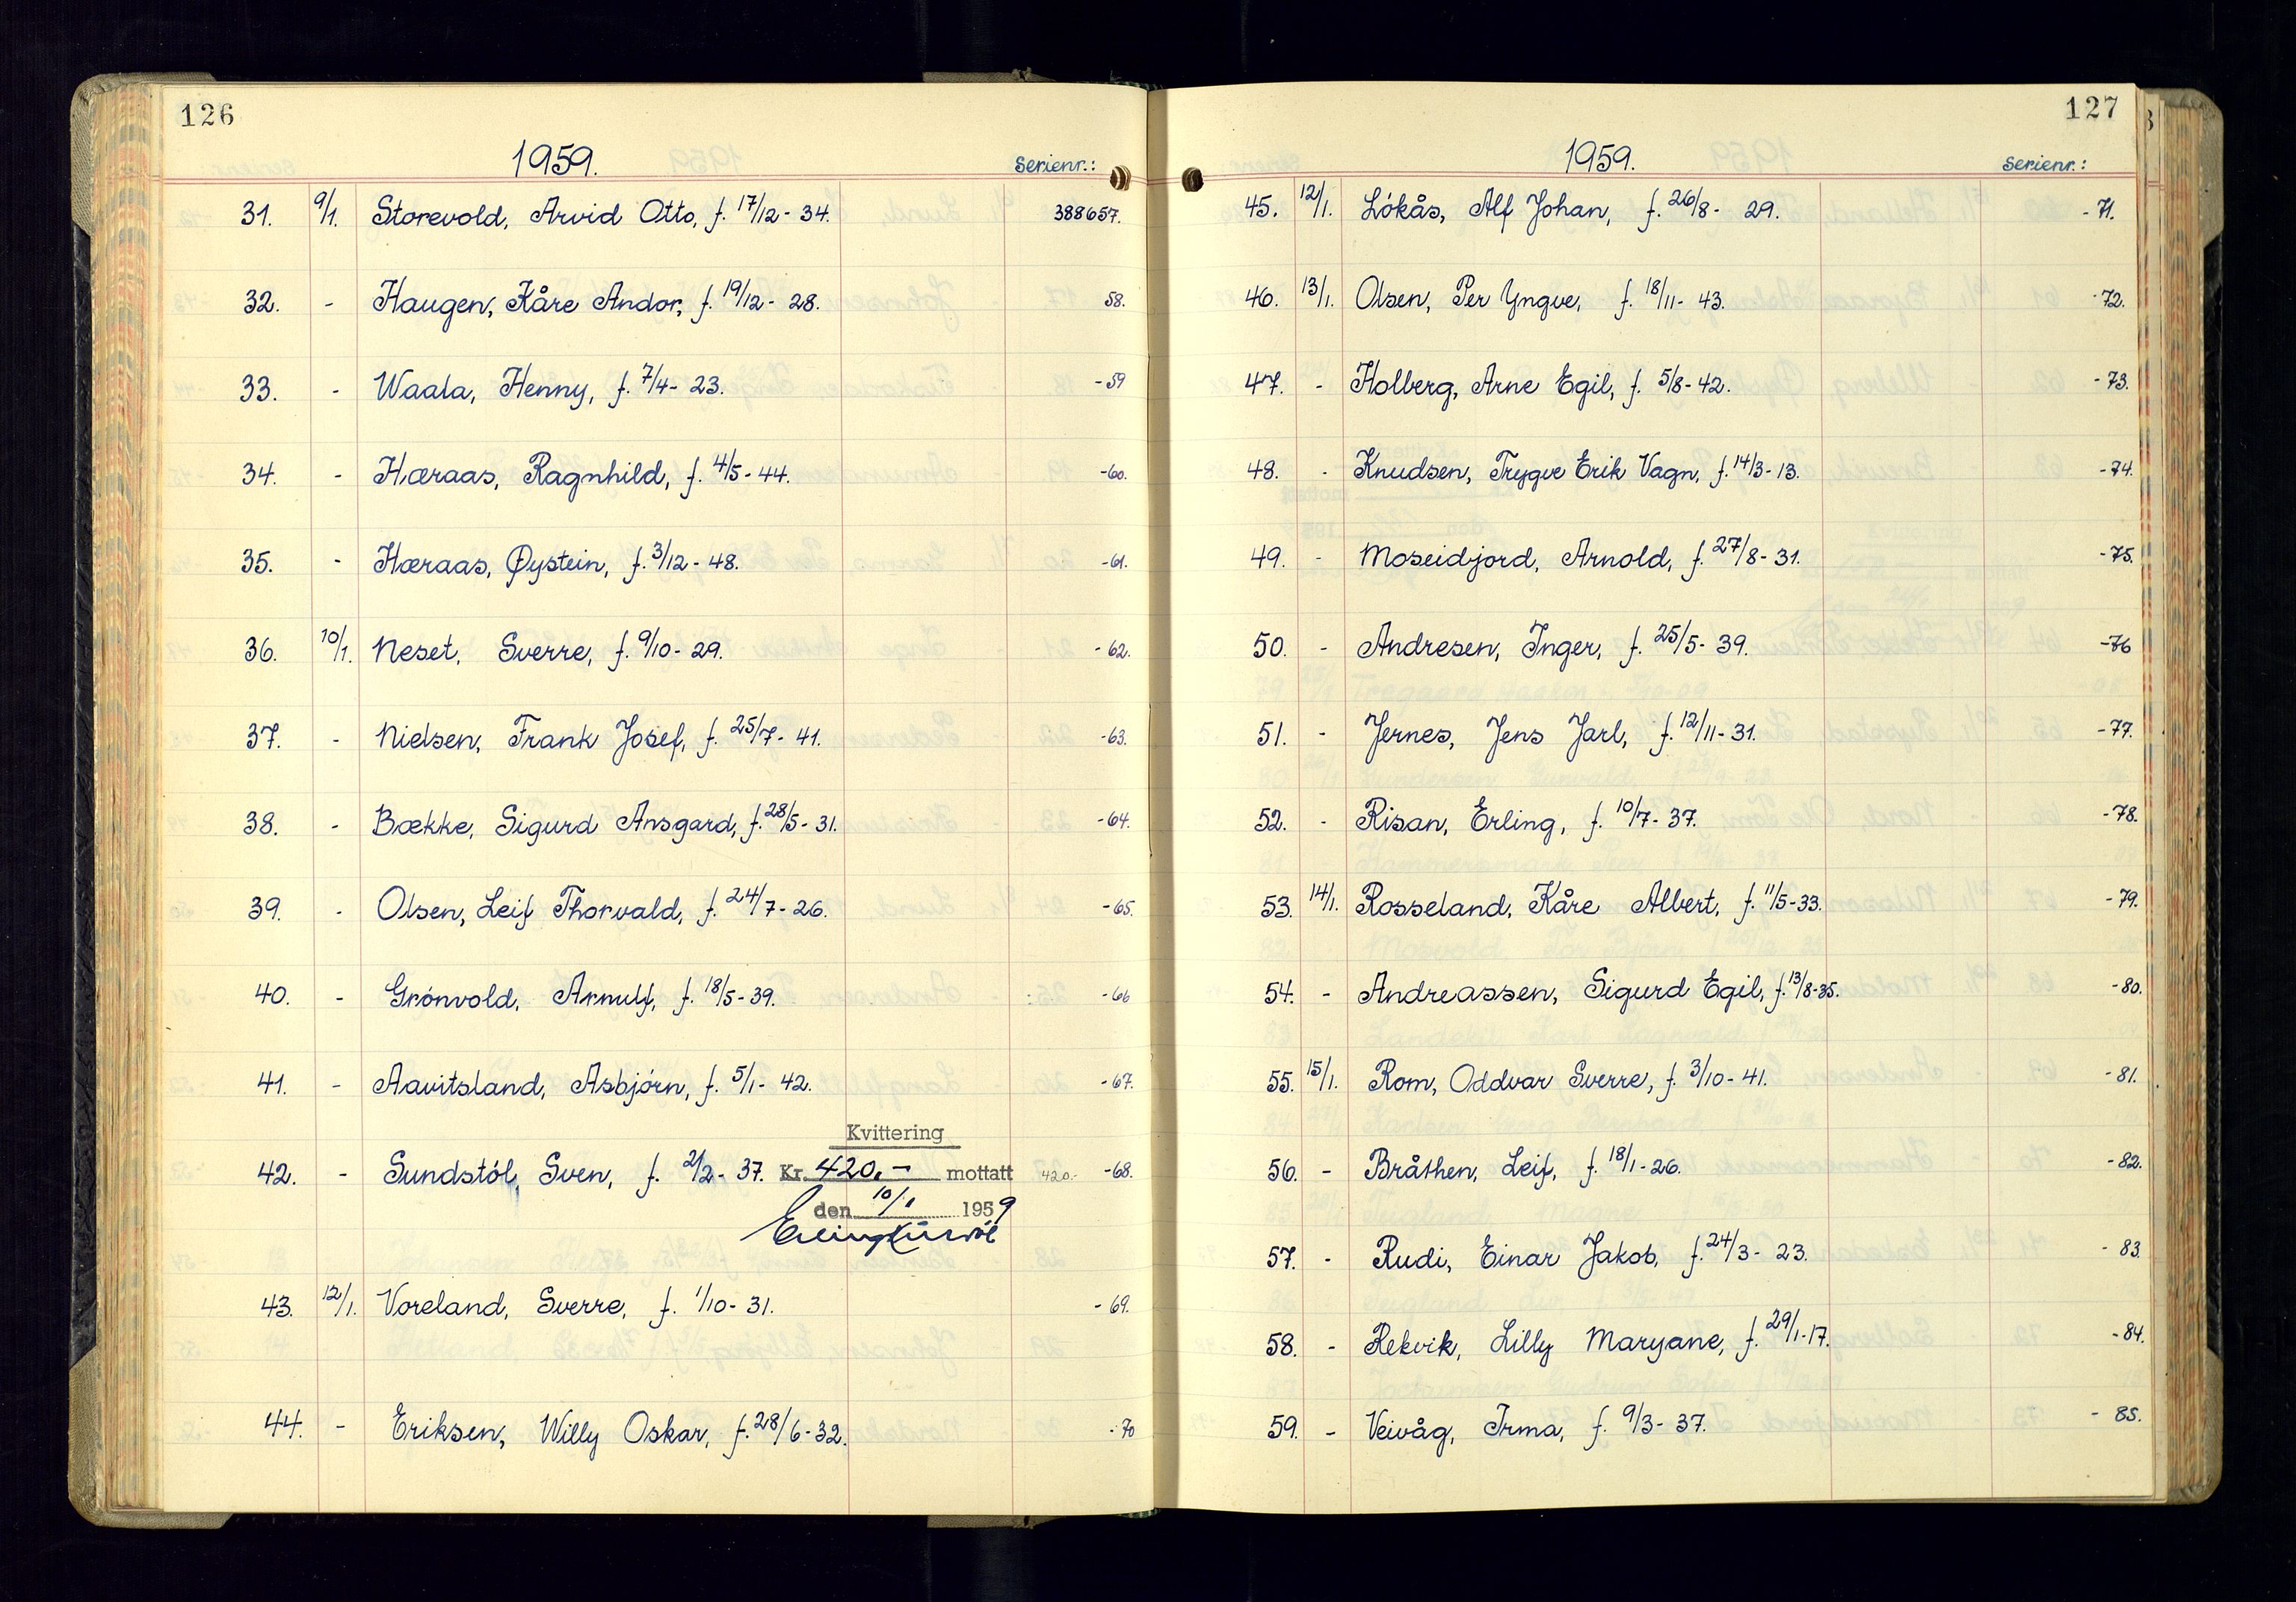 126
1959.
Serienr.:
31. 9/1. Storevold, Arvid Otto, f. 17/12 - 34. 388657.
32. - Haugen, Kåre Andor, f. 19/12 - 28. 58.
33. - Waala, Henny, f. 7/4 - 23. -59
34. - Hæraas, Ragnhild, f. 4/5 - 44. -60.
35. - Hæraas, Øystein, f. 3/12 - 48. -61.
36. 10/1. Neset, Sverre, f. 9/10 - 29. -62.
37. - Nielsen, Frank Josef, f. 25/7 - 41. -63.
38. - Bække, Sigurd Ansgard, f. 28/5 - 31. -64.
39. - Olsen, Leif Thorvald, f. 24/7 - 26. -65.
40. - Grónvold, Arnulf, f. 18/5 - 39. -66
41. - Aavitsland, Asbjórn, f. 5/1 - 42. -67.
Kvittering
42. - Sundstól, Sven, f. 2/2 - 37. Kr. 420,- mottatt 420.- -68.
den 10/1 1959
43. 12/1. Voreland, Sverre, f. 1/10 - 31. -69.
44. - Eriksen, Willy Oskar, f. 28/6 - 32. -70
127
1959.
Serienr.:
45. 12/1. Lókås, Alf Johan, f. 26/8 - 29. -71.
46. 13/1. Olsen, Per Yngve, f. 18/11 - 43. -72.
47. - Holberg, Arne Egil, f. 5/8 - 42. -73.
48. - Knudsen, Trygve Erik Vagn, f. 14/3 - 13. -74.
49. - Moseidjord, Arnold, f. 27/8 - 31. -75.
50. - Andresen, Inger, f. 25/5 - 39. -76
51. - Jernes, Jens Jarl, f. 12/11 - 31. -77.
52. - Risan, Erling, f. 10/7 - 37. -78.
53. 14/1. Rosseland, Kåre Albert, f. 11/5 - 33. -79.
54. - Andreassen, Sigurd Egil, f. 13/8 - 35. -80.
55. 15/1. Rom, Oddvar Sverre, f. 3/10 - 41. -81.
56. - Bråthen, Leif, f. 18/1 - 26. -82.
57. - Rudi, Einar Jakob, f. 24/3 - 23. -83.
58. - Rekvik, Lilly Maryane, f. 29/1 - 17. -84.
59. - Veivåg, Irma, f. 9/3 - 37. -85.